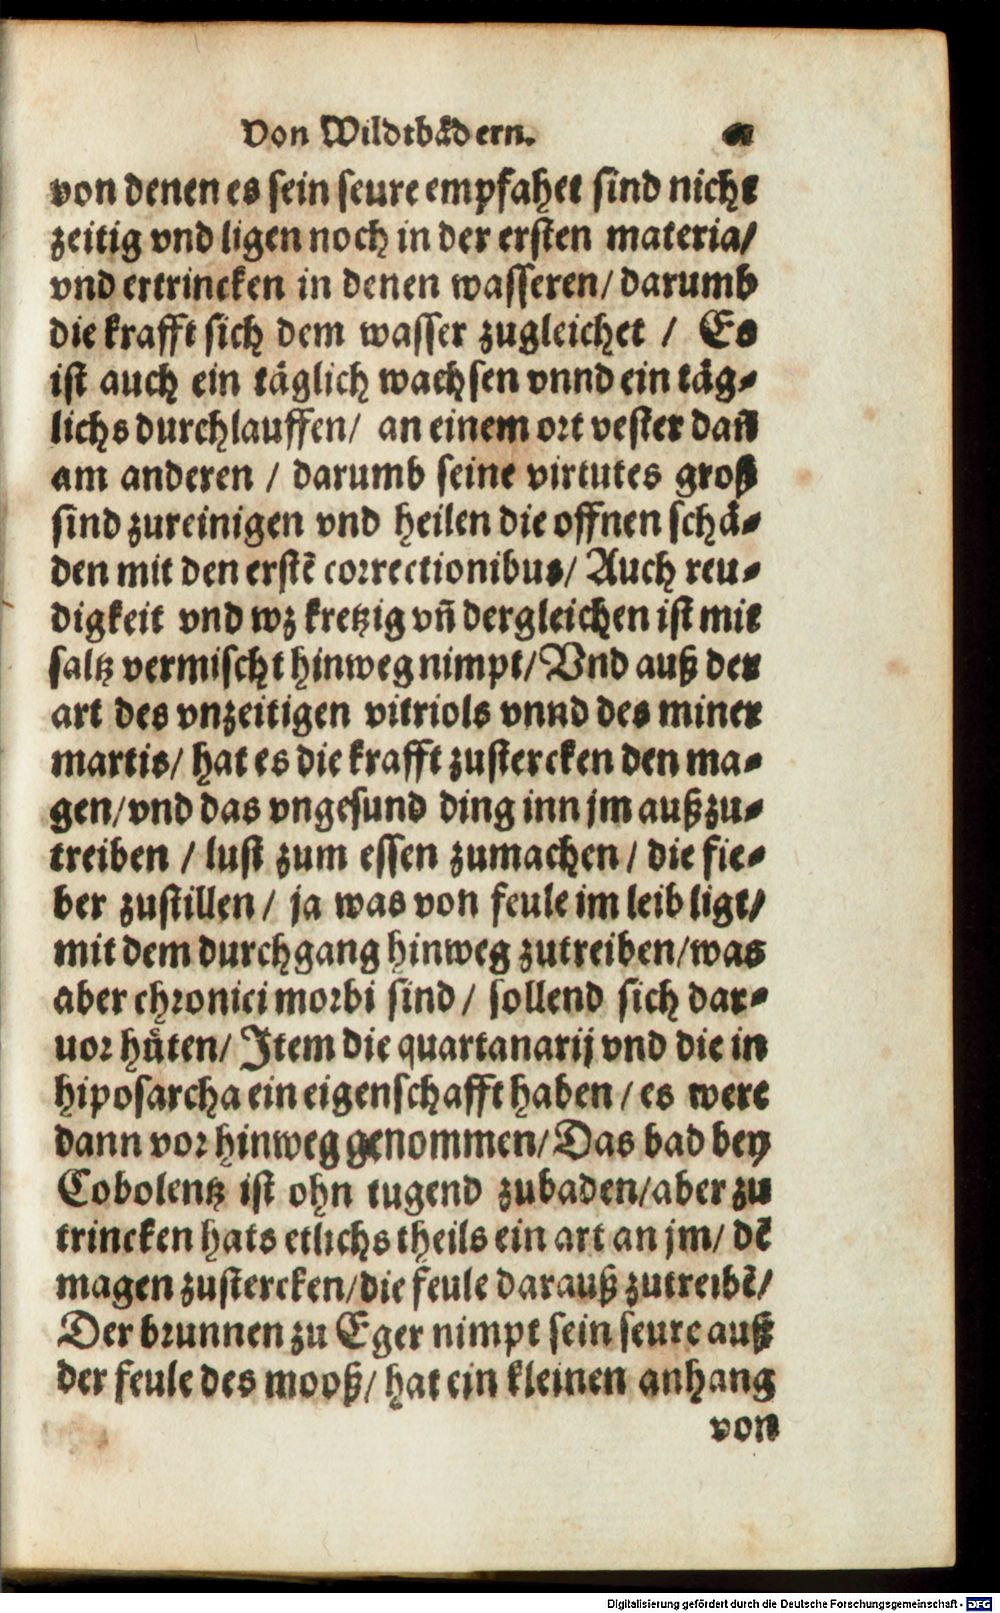 Von Wildtbådern.
von denen es sein seure empfahet sind nicht
zeitig vnd ligen noch in der ersten materia/
vnd ertrincken in denen wasseren/ darumb
die krafft sich dem wasser zugleichet / Es
ist auch ein täglich wachsen vnnd ein täg-
lichs durchlauffen/ an einem ort vester dañ
am anderen / darumb seine virtutes groß
sind zureinigen vnd heilen die offnen schä-
den mit den erstē correctionibus/ Auch reu-
digkeit vnd wz kretzig vñ dergleichen ist mit
saltz vermischt hinweg nimpt/ Vnd auß der
art des vnzeitigen vitriols vnnd des miner
martis/ hat es die krafft zustercken den ma-
gen/ vnd das vngesund ding inn jm außzu-
treiben / lust zum essen zumachen / die fie-
ber zustillen / ja was von feule im leib ligt/
mit dem durchgang hinweg zutreiben/ was
aber chronici morbi sind / sollend sich dar-
uor hůten/ Item die quartanarij vnd die in
hiposarcha ein eigenschafft haben / es were
dann vor hinweg genommen/ Das bad bey
Cobolentz ist ohn tugend zubaden/ aber zu
trincken hats etlichs theils ein art an jm/ dē
magen zustercken/ die feule darauß zutreibē/
Der brunnen zu Eger nimpt sein seure auß
der feule des mooß/ hat ein kleinen anhang
von
Digitalisierung gefördert durch die Deutsche Forschungsgemeinschaft - DFG